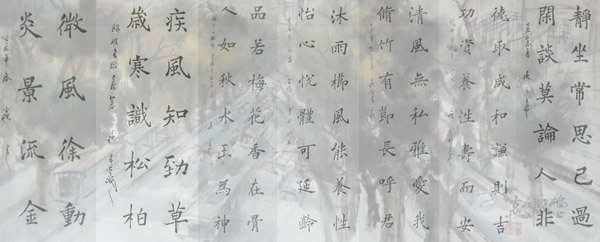 靜坐常思己過
閑談莫論人非
德取成和謙則吉
功資養性壽而安
清風無私雅愛我
脩竹有節長呼君
沐雨櫛風能養性
怡心悅體可延齡
品若梅花香在骨
人如秋水玉為神
疾風知勁草
歲寒識松柏
微風徐動
炎景流金